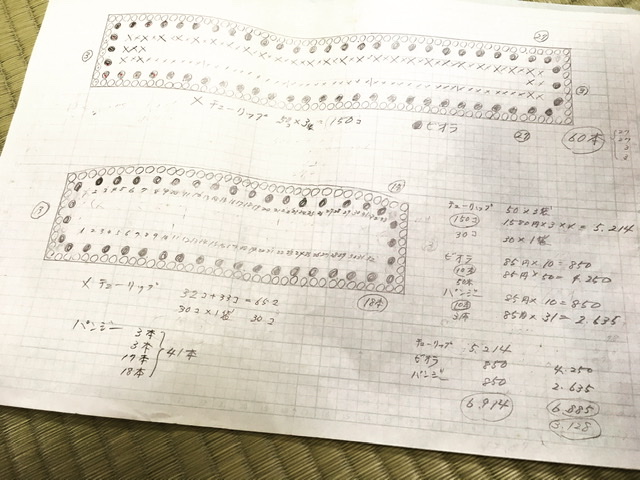 27
③
③
× チューリップ 50コ×3袋=150コ
●ビオラ
27
60本
27
27
3
3
17
③
1 2 3 4 5 6 7 8 9 10 11 12
1 2 3 4 5 6 7 8 9 10 11 12
18本
× チューリップ 32コ+33コ=65コ
30コ×1袋 30コ
パンジー 3本
3本
17本
18本
41本
チューリップ 50×3袋
150コ
30コ 30×1袋
5.214
ビオラ 85円×10=850
10本 85円×50=4.250
50本
パンジー 85円×10=850
10本
31本 85円×31=2.635
チューリップ 5.214
ビオラ 850 4.250
パンジー 850 2.635
6.914 6.885
3.128